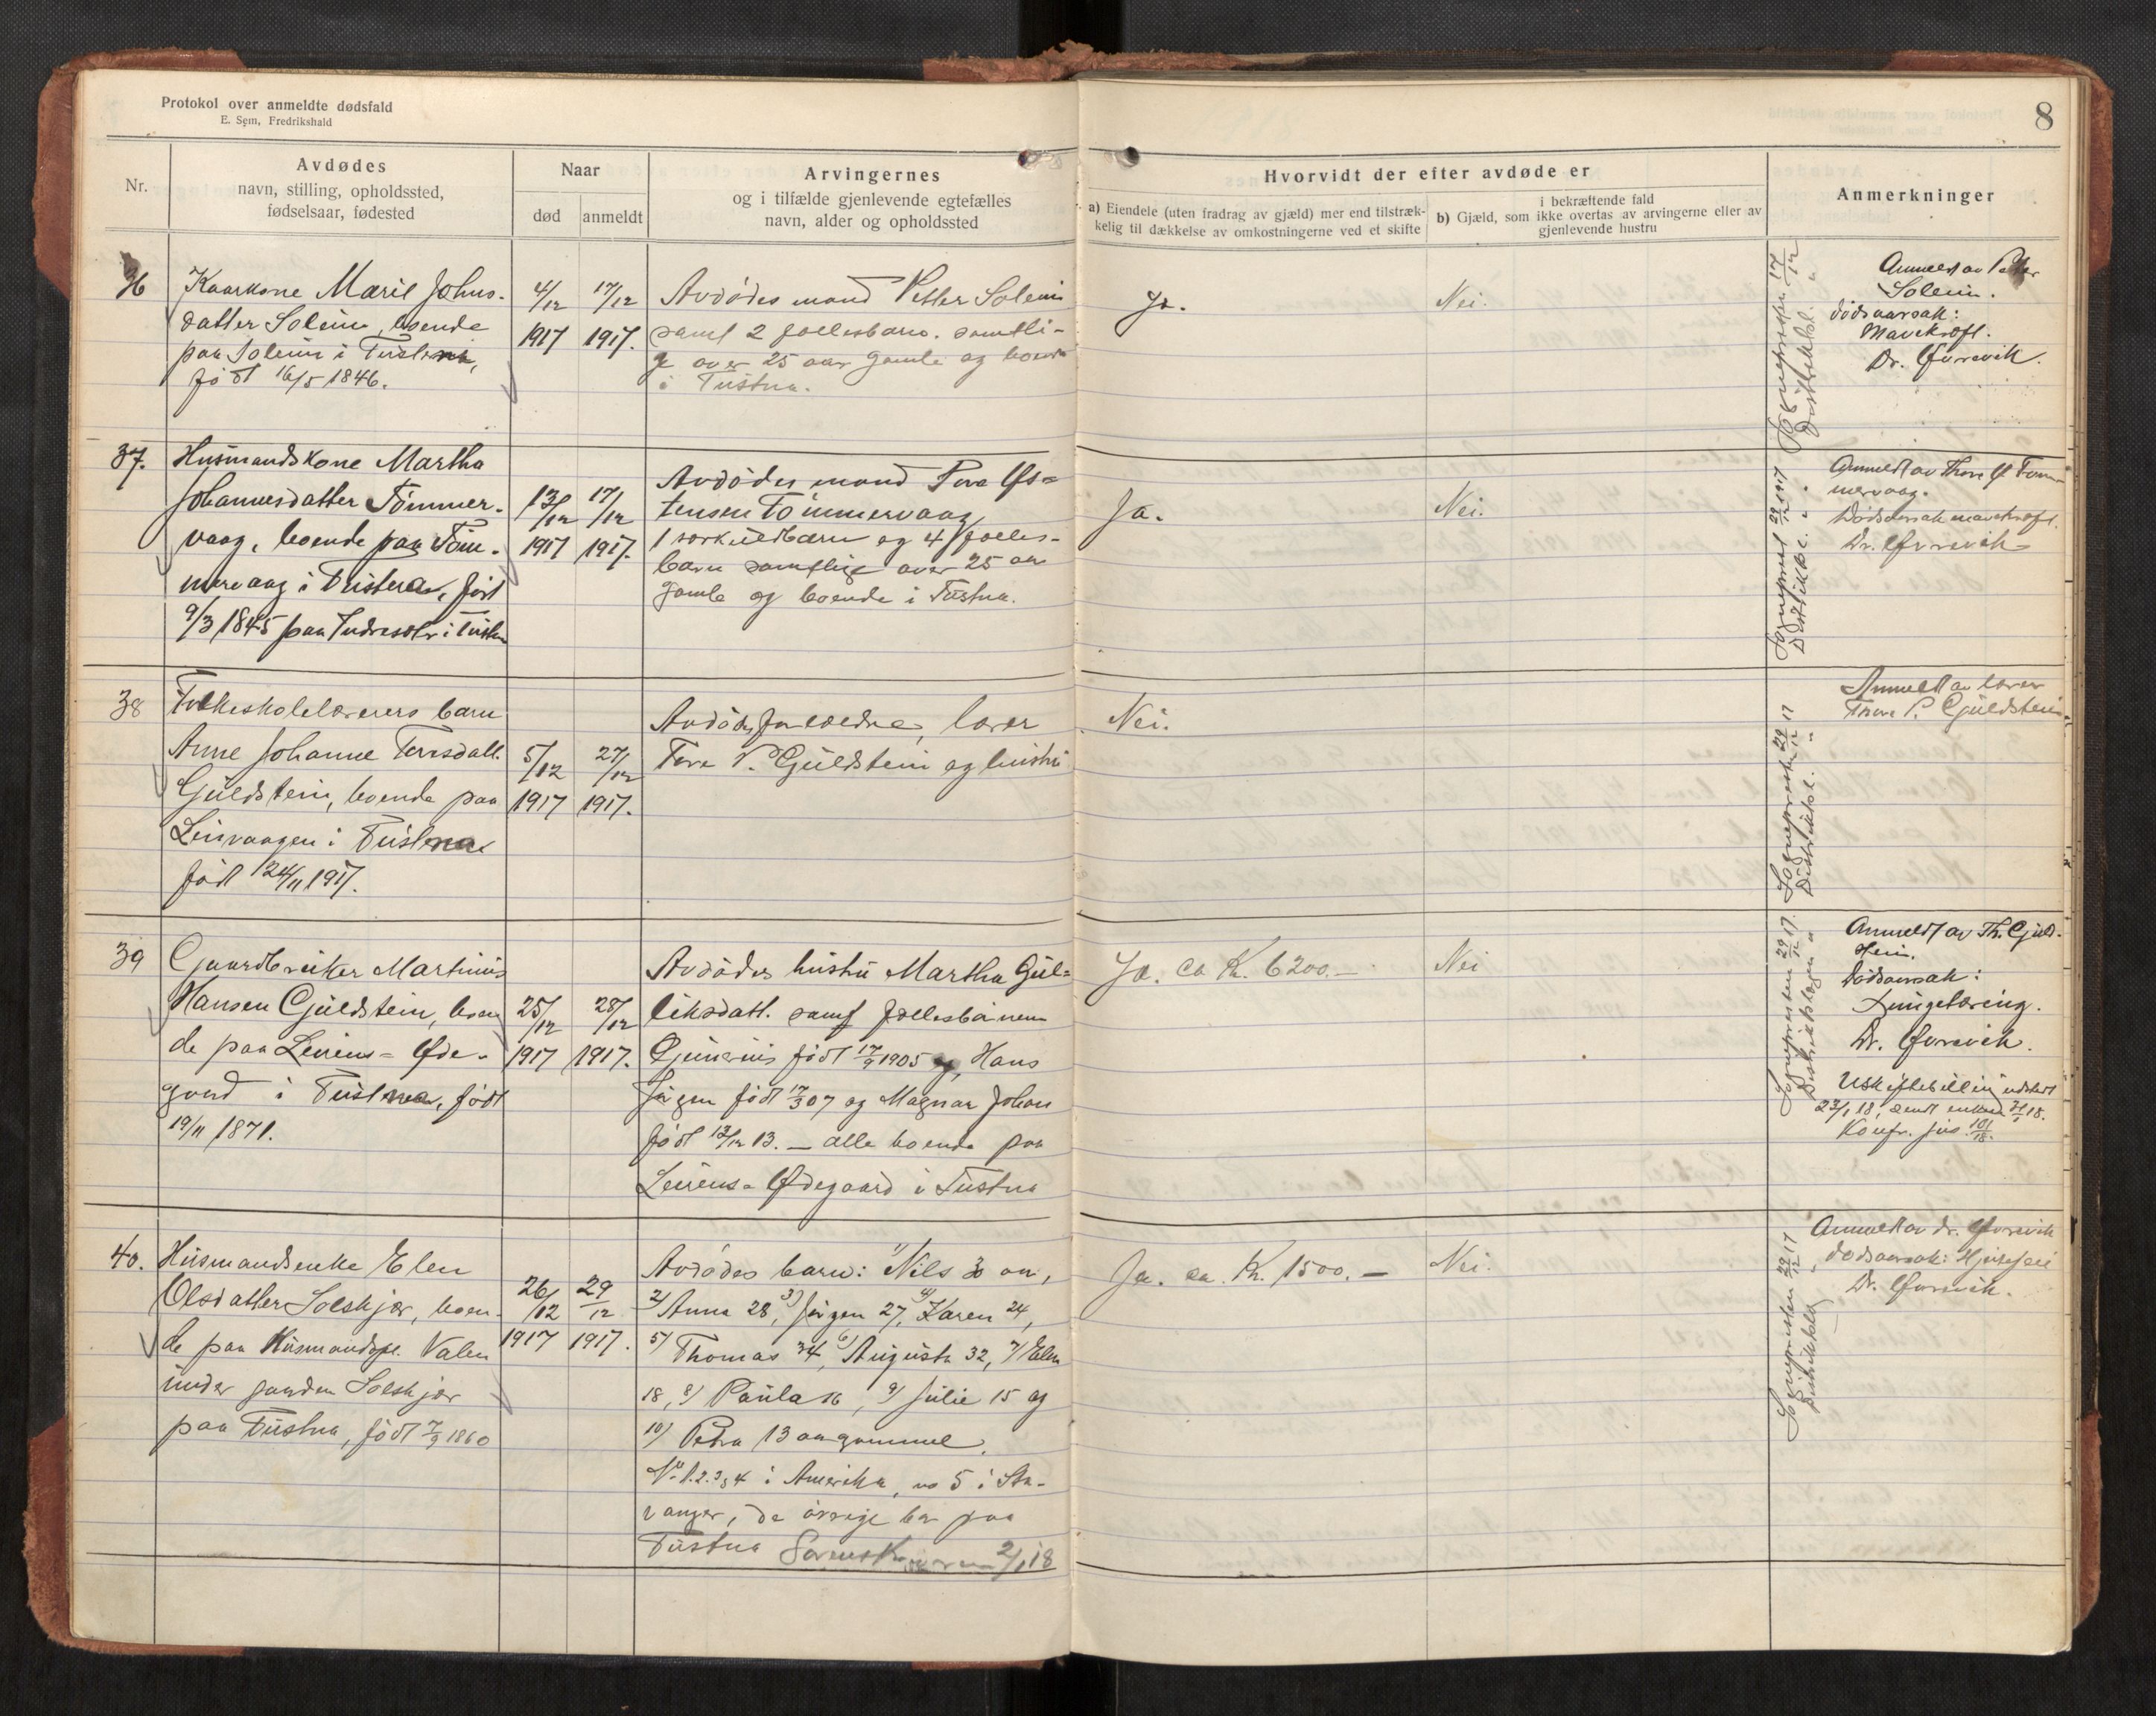 Protokol over anmeldte dødsfald
E. Sem, Fredrikshald
8
Nr.
Avdødes
navn, stilling, opholdssted,
fødselsaar, fødested
Naar
død
anmeldt
Arvingernes
og i tilfælde gjenlevende egtefælles
navn, alder og opholdssted
Hvorvidt der efter avdøde er
a) Eiendele (uten fradrag av gjæld) mer end tilstræk-
kelig til dækkelse av omkostningerne ved et skifte
i bekræftende fald
b) Gjæld, som ikke overtas av arvingerne eller av
gjenlevende hustru
Anmerkninger
36
Kaarkone Marit Johns-
datter Solem, boende
paa Solem i Tustna,
født 16/5 1846.
4/12 1917
17/12 1917.
Avdødes mand Petter Solem
samt 2 fællesbarn. samtli-
ge over 25 aar gamle og boende
i Tustna.
Ja.
Nei.
Sognepresten 17/12
Distriktsl. "
Anmeldt av Petter
Solem.
dødsaarsak:
Mavekræft.
Dr. Øvrevik.
37.
Husmandskone Martha
Johannesdatter Tømmer-
vaag, boende paa Tøm-
mervaag i Tustna, født
9/3 1845 paa Indresæter i Tustna
13/12 1917
17/12 1917.
Avdødes mand Tore Øs-
tensen Tømmervaag
1 særkuldbarn og 4 fælles-
barn samtlige over 25 aar
gamle og boende i Tustna.
Ja.
Nei.
Sogneprest 29/12 1917
Distriktsl. " "
Anmeldt av Thore Ø Tøm-
mervaag.
Dødsaarsak mavekræft.
Dr. Øvrevik
38
Folkeskolelærers barn
Anne Johanne Toresdatt.
Gjuldstein, boende paa
Leirvaagen i Tustna
født 24/11 1917.
5/12 1917
27/12 1917.
Avdødes forældre, lærer
Tore P. Gjuldstein og hustru
Nei.
Sognepresten 29/12 17
Distriktsl. "
Anmeldt av lærer
Tore P. Gjuldstein.
39
Gaardbruker Martinus
Hansen Gjuldstein, boen
de paa Leirens-Øde-
gaard i Tustna, født
19/11 1871.
25/12 1917
28/12 1917.
Avdødes hustru Martha Gul-
liksdatt. samt fællesbarnene
Gunerius født 17/9 1905, Hans
Jørgen født 17/3 07 og Magnar Johan
født 13/12 13. — alle boende paa
Leirens-Ødegaard i Tustna
Ja. ca Kr. 6200.—
Nei
Sognepresten 29/12 17.
Distriktslægen "
Anmeldt av Th. Gjuld-
stein.
Dødsaarsak:
Lungetæring.
Dr. Øvrevik.
Uskiftebevilling utstedt
23/1 18, sendt enken 24/1 18.
Konfr. jns. 101/18.
40.
Husmandsenke Elen
Olsdatter Solskjær, boen-
de paa Husmandspl. Valen
under gaarden Solskjær
paa Tustna, født 7/9 1860
26/12 1917
29/12 1917.
Avdødes barn: 1) Nils 30 aar,
2) Anna 28, 3) Jørgen 27, 4) Karen 24,
5) Thomas 34, 6) Augusta 32, 7) Elen
18, 8) Paula 16, 9) Julie 15 og
10) Petra 13 aar gammel.
No 1.2.3 & 4 i Amerika, no 5 i Sta-
vanger, de øvrige bor paa
Tustna Sorenskriveren 2/1 18
Ja. ca. Kr. 1500.—
Nei.
Sognepresten 29/12 17
Distriktslæg "
Anmeldt av dr. Øvrevik
dødsaarsak: Hjertefeil
Dr. Øvrevik.